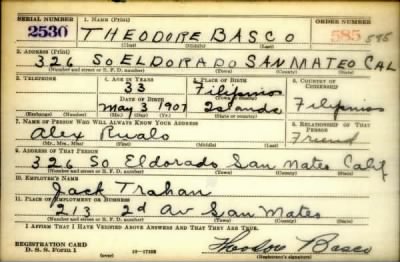 SERIAL NUMBER 1. NAME (Print) ORDER NUMBER
2530 THEODORE BASCO 585 585
(First) (Middle) (Last)
2. ADDRESS (Print)
326 SO ELDORADO SAN MATEO CAL
(Number and street or R. F. D. number) (Town) (County) (State)
3. TELEPHONE 4. AGE IN YEARS 5. PLACE OF BIRTH 6. COUNTRY OF CITIZENSHIP
33 Filipinos
DATE OF BIRTH (Town or county)
May 3 1907 Islands Filipinos
(Exchange) (No.) (Mo.) (Day) (Yr.) (State or country)
7. NAME OF PERSON WHO WILL ALWAYS KNOW YOUR ADDRESS 8. RELATIONSHIP OF THAT PERSON
Alex Friend
(Mr., Mrs., Miss) (First) (Middle) (Last)
9. ADDRESS OF THAT PERSON
326 So Eldorado San Mateo Calif
(Number and street or R. F. D. number) (Town) (County) (State)
10. EMPLOYER'S NAME
Jack Trahan
11. PLACE OF EMPLOYMENT OR BUSINESS
213 2d Av San Mateo
(Number and street or R. F. D. number) (Town) (County) (State)
I AFFIRM THAT I HAVE VERIFIED ABOVE ANSWERS AND THAT THEY ARE TRUE.
REGISTRATION CARD
D. S. S. Form 1 (over) Theodore Basco
(Registrant's signature)